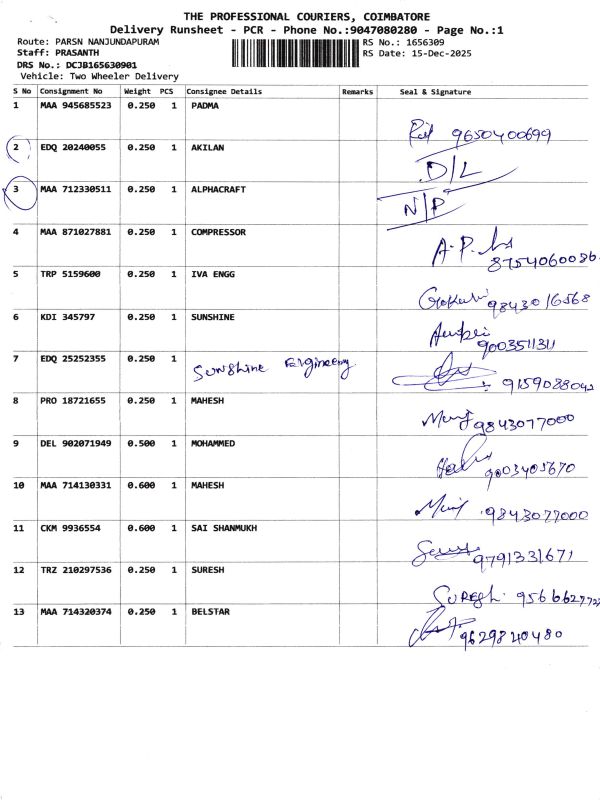 THE PROFESSIONAL COURIERS, COIMBATORE
Delivery Runsheet - PCR - Phone No.:9047080280 - Page No.:1
Route: PARSN NANJUNDAPURAM
RS No.: 1656309
Staff: PRASANTH
RS Date: 15-Dec-2025
DRS No.: DCJB165630901
Vehicle: Two Wheeler Delivery
S No Consignment No Weight PCS Consignee Details Remarks Seal & Signature
1 MAA 945685523 0.250 1 PADMA
9650400699
2 EDQ 20240055 0.250 1 AKILAN
D/L
3 MAA 712330511 0.250 1 ALPHACRAFT
N/P
4 MAA 871027881 0.250 1 COMPRESSOR
8754060086
5 TRP 5159600 0.250 1 IVA ENGG
9843016568
6 KDI 345797 0.250 1 SUNSHINE
9003511311
7 EDQ 25252355 0.250 1 Sunshine Engineering
9159088042
8 PRO 18721655 0.250 1 MAHESH
9843077000
9 DEL 902071949 0.500 1 MOHAMMED
9003405670
10 MAA 714130331 0.600 1 MAHESH
9843077000
11 CKM 9936554 0.600 1 SAI SHANMUKH
9791331671
12 TRZ 210297536 0.250 1 SURESH
SURESh. 9566627722
13 MAA 714320374 0.250 1 BELSTAR
9629840480